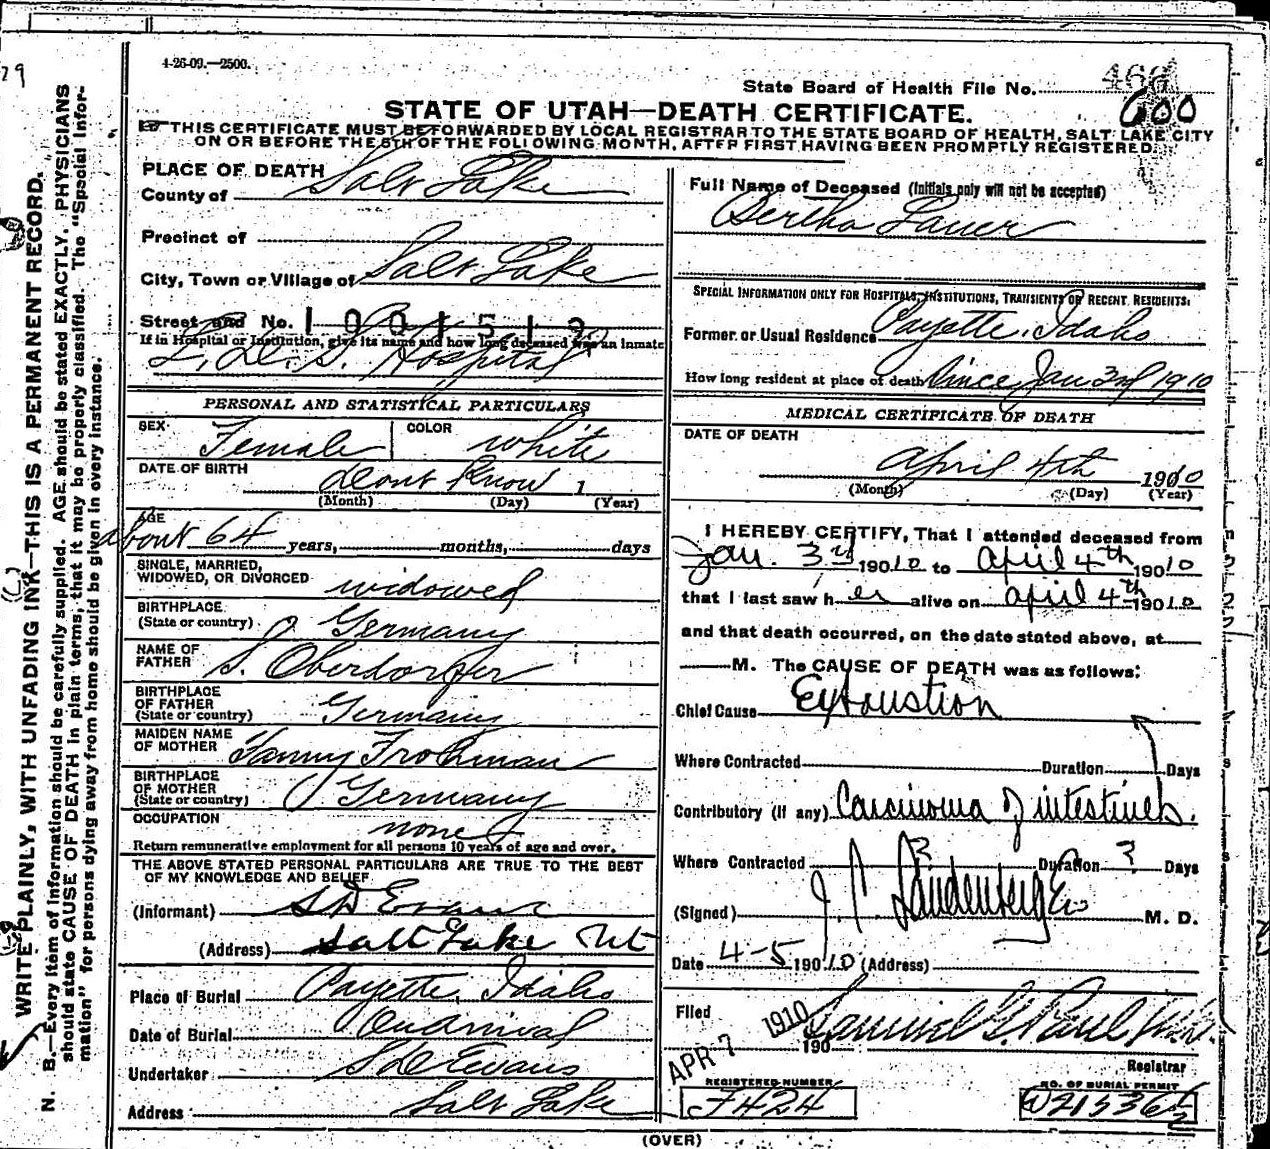 4-26-09.—2500.
State Board of Health File No. 466
600
STATE OF UTAH—DEATH CERTIFICATE.
THIS CERTIFICATE MUST BE FORWARDED BY LOCAL REGISTRAR TO THE STATE BOARD OF HEALTH, SALT LAKE CITY
ON OR BEFORE THE 5TH OF THE FOLLOWING MONTH, AFTER FIRST HAVING BEEN PROMPTLY REGISTERED.
WRITE PLAINLY, WITH UNFADING INK—THIS IS A PERMANENT RECORD.
N. B.—Every item of information should be carefully supplied. AGE should be stated EXACTLY. PHYSICIANS
should state CAUSE OF DEATH in plain terms, that it may be properly classified. The "Special Infor-
mation" for persons dying away from home should be given in every instance.
PLACE OF DEATH
County of Salt Lake
Precinct of
City, Town or Village of Salt Lake
Street and No. 1001513
If in Hospital or Institution, give its name and how long deceased was an inmate
L. D. S. Hospital
PERSONAL AND STATISTICAL PARTICULARS
SEX Female COLOR white
DATE OF BIRTH dont know 1
(Month) (Day) (Year)
AGE
about 64 years, months, days
SINGLE, MARRIED,
WIDOWED, OR DIVORCED widowed
BIRTHPLACE
(State or country) Germany
NAME OF
FATHER S. Oberdorfer
BIRTHPLACE
OF FATHER
(State or country) Germany
MAIDEN NAME
OF MOTHER Fanny Frohman
BIRTHPLACE
OF MOTHER
(State or country) Germany
OCCUPATION none
Return remunerative employment for all persons 10 years of age and over.
THE ABOVE STATED PERSONAL PARTICULARS ARE TRUE TO THE BEST
OF MY KNOWLEDGE AND BELIEF
(Informant) S D Evans
(Address) Salt Lake Ut
Place of Burial Payette, Idaho
Date of Burial On Arrival
Undertaker S D Evans
Address Salt Lake
Full Name of Deceased (Initials only will not be accepted)
Bertha Lauer
SPECIAL INFORMATION ONLY FOR HOSPITALS, INSTITUTIONS, TRANSIENTS OR RECENT RESIDENTS:
Former or Usual Residence Payette, Idaho
How long resident at place of death Since Jan 3rd 1910
MEDICAL CERTIFICATE OF DEATH
DATE OF DEATH
April 4th 1910
(Month) (Day) (Year)
I HEREBY CERTIFY, That I attended deceased from
Jan. 3rd 190 10 to April 4th 190 10
that I last saw h er alive on April 4th 190 10
and that death occurred, on the date stated above, at
M. The CAUSE OF DEATH was as follows:
Chief Cause Exhoustion
Where Contracted Duration Days
Contributory (if any) Carcinoma of intestines.
Where Contracted ? Duration ? Days
(Signed) J. C. Landenberger M. D.
Date 4-5 190 10 (Address)
Filed APR 7 1910 190 Samuel G. Paul
Registrar
REGISTERED NUMBER
F424
NO. OF BURIAL PERMIT
(OVER)